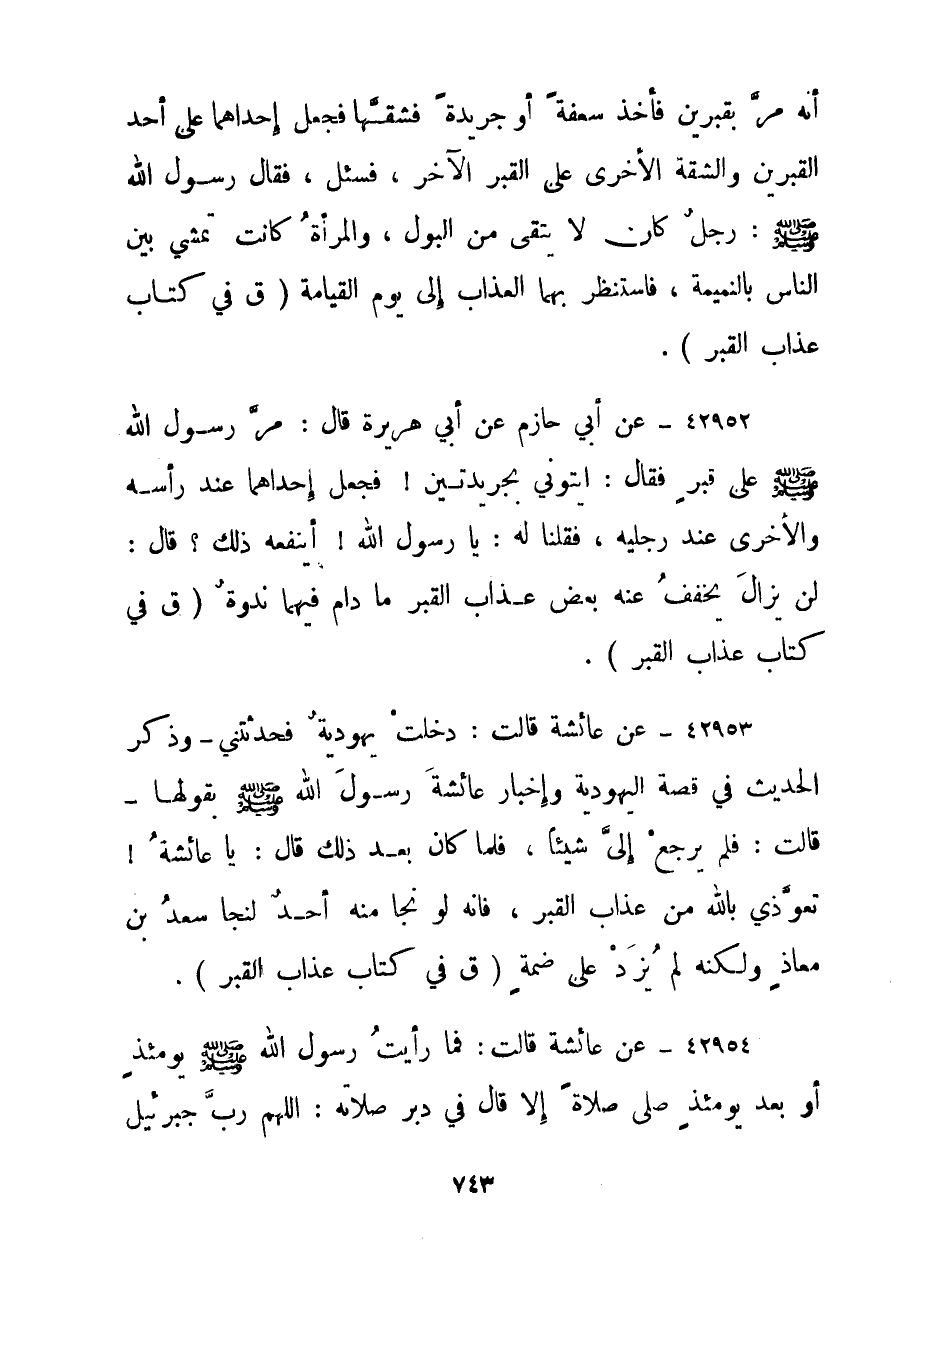 أنه مرَّ بقبرين فأخذ سعفةً أو جريدةً فشقَّها فجعل إحداهما على أحد
القبرين والشقة الأخرى على القبر الآخر ، فسئل ، فقال رسول الله
ﷺ : رجلٌ كان لا يتقى من البول ، والمرأةُ كانت تمشي بين
الناس بالنميمة ، فاستنظر بهما العذاب إلى يوم القيامة ( ق في كتاب
عذاب القبر ) .
٤٢٩٥٢ - عن أبي حازم عن أبي هريرة قال : مرَّ رسول الله
ﷺ على قبرٍ فقال : ايتوني بجريدتين ! فجعل إحداهما عند رأسه
والأخرى عند رجليه ، فقلنا له : يا رسول الله ! أينفعه ذلك ؟ قال :
لن يزالَ يخففُ عنه بعض عذاب القبر ما دام فيهما ندوةٌ ( ق في
كتاب عذاب القبر ) .
٤٢٩٥٣ - عن عائشة قالت : دخلتْ يهوديةٌ فحدثتني - وذكر
الحديث في قصة اليهودية وإخبار عائشةَ رسولَ الله ﷺ بقولها -
قالت : فلم يرجعْ إليَّ شيئاً ، فلما كان بعد ذلك قال : يا عائشةُ !
تعوَّذي بالله من عذاب القبر ، فانه لو نجا منه أحدٌ لنجا سعدُ بن
معاذٍ ولكنه لم يُزَدْ على ضمةٍ ( ق في كتاب عذاب القبر ) .
٤٢٩٥٤ - عن عائشة قالت : فما رأيتُ رسول الله ﷺ يومئذٍ
أو بعد يومئذٍ صلى صلاةً إلا قال في دبر صلاته : اللهم ربَّ جبرئيل
٧٤٣